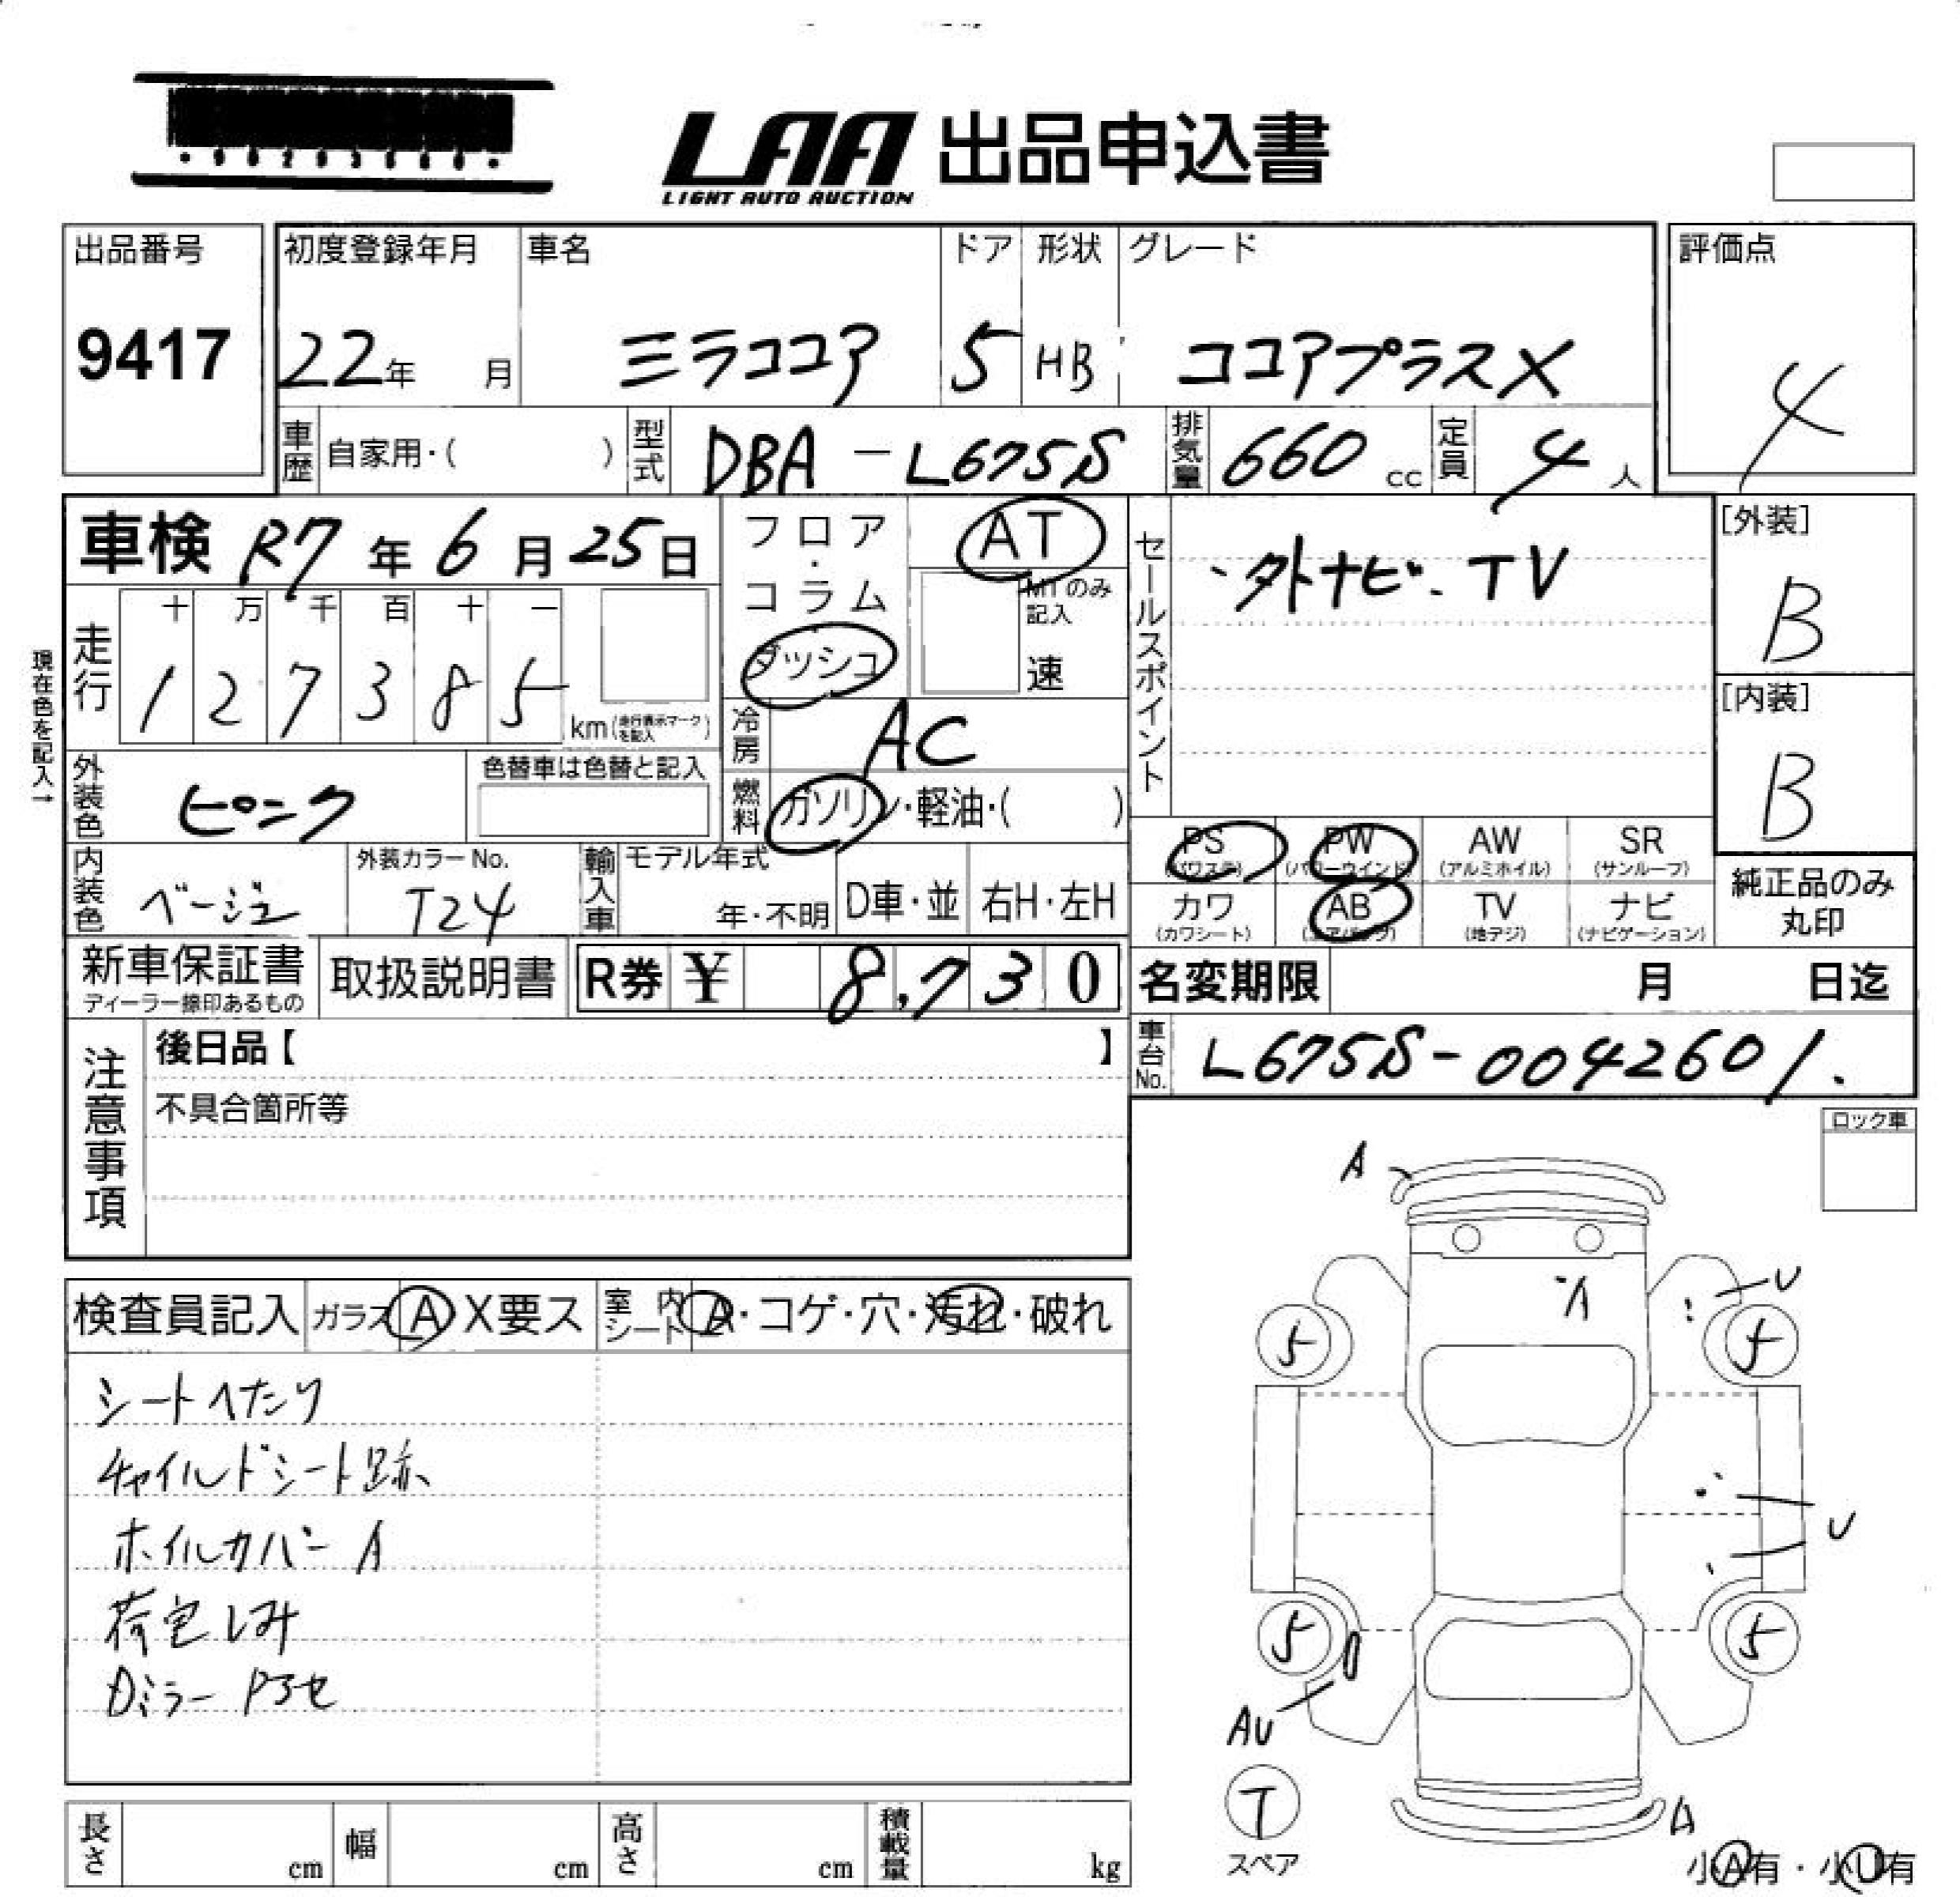 LAA 出品申込書
LIGHT AUTO AUCTION
出品番号
9417
初度登録年月
22年 月
車名
ミラココア
ドア
5
形状
HB
グレード
ココアプラスX
評価点
4
車歴 自家用・( )
型式 DBA-L675S
排気量 660 cc
定員 4 人
車検 R7年6月25日
フロア・コラム
ダッシュ
AT
MTのみ記入
速
セールスポイント
・外ナビ.TV
[外装]
B
[内装]
B
現在色を記入→
走行
十 万 千 百 十 一
1 2 7 3 8 5
km(走行表示マークを記入)
冷房 AC
燃料 ガソリン・軽油・( )
外装色 ピンク
色替車は色替と記入
内装色 ベージュ
外装カラーNo.
T24
輸入車 モデル年式
年・不明
D車・並
右H・左H
PS
(パワステ)
PW
(パワーウインド)
AW
(アルミホイル)
SR
(サンルーフ)
カワ
(カワシート)
AB
(エアバッグ)
TV
(地デジ)
ナビ
(ナビゲーション)
純正品のみ
丸印
新車保証書
ディーラー捺印あるもの
取扱説明書
R券 ¥ 8,730
名変期限 月 日迄
車台No. L675S-0042601.
注意事項
後日品【 】
不具合箇所等
ロック車
検査員記入
ガラス A X要ス
室内シート A・コゲ・穴・汚れ・破れ
シートへたり
チャイルドシート跡
ホイルカバーA
荷室しみ
A
A
U
5
5
U
5
5
AU
T
スペア
A
小A有・小U有
長さ cm
幅 cm
高さ cm
積載量 kg